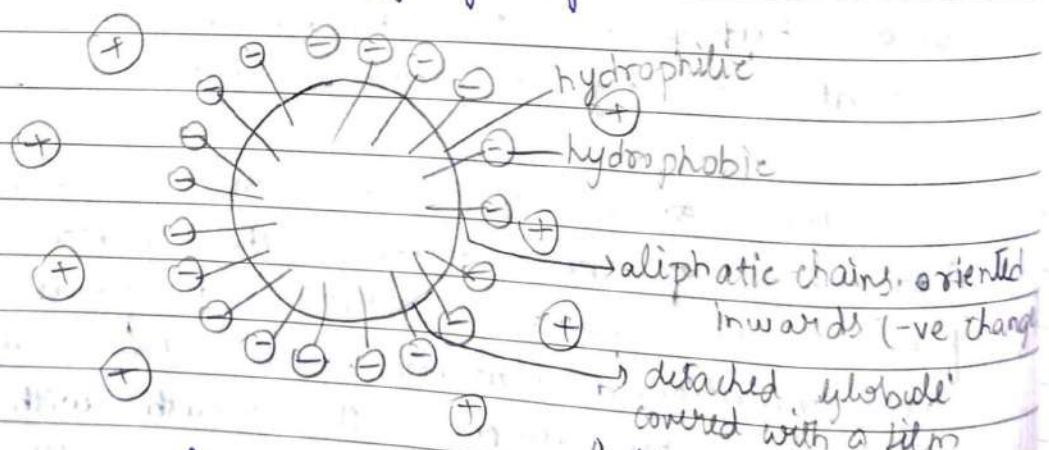 hydrophilic
hydrophobic
aliphatic chains. oriented
inwards (-ve
detached globule
covered with a film